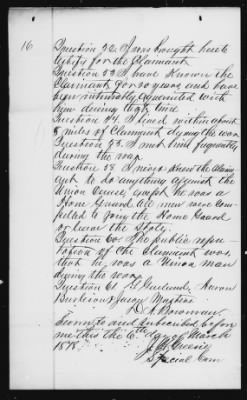 16
Question 52. I was bought here to
testify for the Claimant.
Question 53 I have known the
Claimant for 20 years and have
been intimately aquainted with
him during that time.
Question 54. I lived within about
8 miles of Claimant dying the war.
Question 55. I met him frequently
during the war.
Question 58 I never knew the Claim-
ant to do anything against the
Union Cause, except he was a
Home Guard. All men were com-
pelled to Joing the Home Guard
or leave the State.
Question 60. The public repu-
tation of the Claimant was,
that he was a Union man
during the war.
Question 61 Garland, Aaron
Burleson & Mastins
D. A. Bowman
Sworn to and subscribed before
me this the 6th day of March
1878.
Special Com